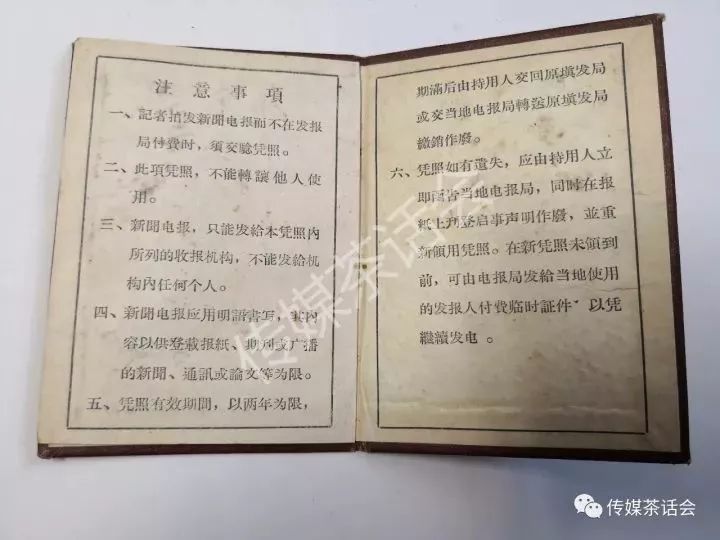 注意事項
一、記者拍发新聞电报而不在发报
局付費时，須交驗凭照。
二、此項凭照，不能轉讓他人使
用。
三、新聞电报，只能发給本凭照內
所列的收报机构，不能发給机
构內任何个人。
四、新聞电报应用明語書写，其內
容以供登載报紙、期刊或广播
的新聞、通訊或論文等为限。
五、凭照有效期間，以两年为限，
期滿后由持用人交回原填发局
或交当地电报局轉送原填发局
繳銷作廢。
六、凭照如有遺失，应由持用人立
即函告当地电报局，同时在报
紙上刋登启事声明作廢，並重
新領用凭照。在新凭照未領到
前，可由电报局发給当地使用
的发报人付費临时証件，以凭
繼續发电。
传媒茶话会
传媒茶话会